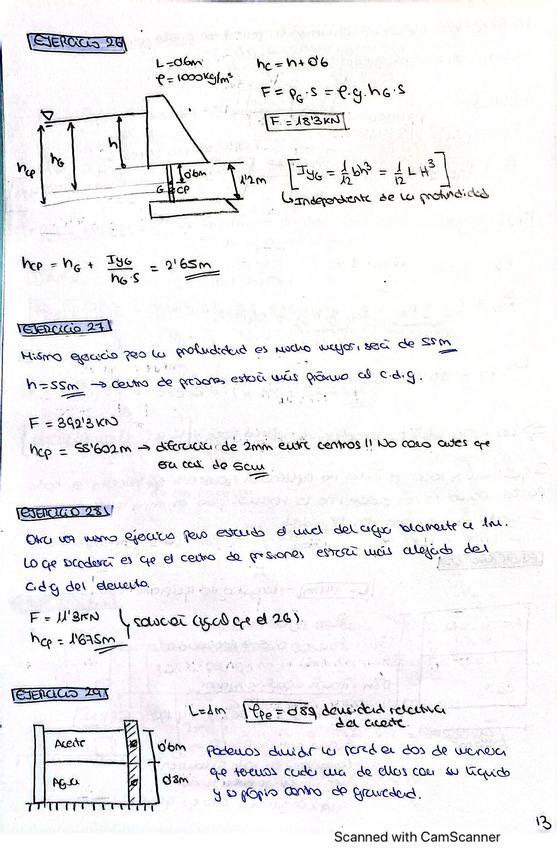 EJERCICIO 26
L=0'6m
ρ=1000kg/m³
hc = h + 0'6
F = PG·S = ρ·g·hG·S
F = 18'3KN
hCP
hG
h
0'6m
1'2m
G
CP
[IyG = 1/12 bh³ = 1/12 L H³]
↳ Independiente de la profundidad
hCP = hG + IyG/hG·S = 2'65m
EJERCICIO 27
Mismo ejercicio pero la profundidad es mucho mayor, será de 55m
h=55m → centro de presiones estará más próximo al c.d.g.
F = 392'3KN
hCP = 55'602m → diferencia de 2mm entre centros!! No como antes que
era casi de 5cm
EJERCICIO 28
Otra vez mismo ejercicio pero estando el nivel del agua solamente a 1m.
Lo que sucederá es que el centro de presiones estará más alejado del
c.d.g del elemento.
F = 11'3KN
hCP = 1'675m
solución (igual que el 26).
EJERCICIO 29
L=1m
ρре = 0'89 densidad relativa
del aceite
Aceite
Agua
0'6m
0'3m
Podemos dividir la pared en dos de manera
que tenemos cada una de ellas con su líquido
y su propio centro de gravedad.
13
Scanned with CamScanner